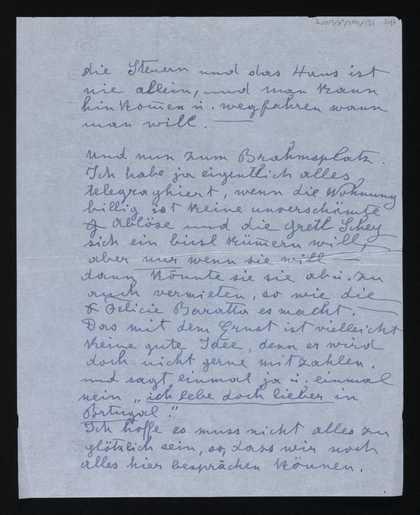 die Steuern und das Haus ist
nie allein, und man kann
hinkom̄en u. wegfahren wann
man will.
Und nun zum Brahmsplatz.
Ich habe ja eigentlich alles
telegraghiert, wenn die Wohnung
billig ist keine unverschämte
Ablöse und die Gretl Schey
sich ein bissl küm̄ern will,
aber nur wenn sie will —
dann könnte sie sie ab u. zu
auch vermieten, so wie die
Felicie Baratta es macht.
Das mit dem Ernst ist vielleicht
keine gute Idee, denn er wird
doch nicht gerne mitzahlen.
und sagt einmal ja u. einmal
nein „ich lebe doch lieber in
Portugal".
Ich hoffe es muss nicht alles zu
plötzlich sein, so dass wir noch
alles hier bespräcken können.